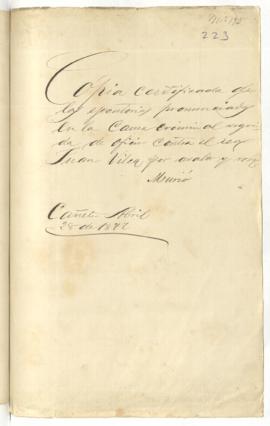 Nº 195
223
Copia certificada de
las ejecutorias pronunciadas
en la Causa criminal segui-
da de oficio contra el reo
Juan Vilca por asalto y robo
Murió
Cañete Abril
28 de 1872